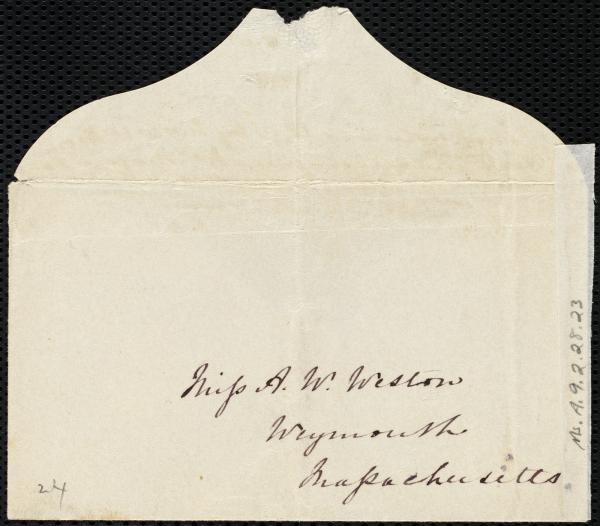 Miss A. W. Weston
Weymouth
Massachusetts
24
Ms. A. 9. 2. 28. 23